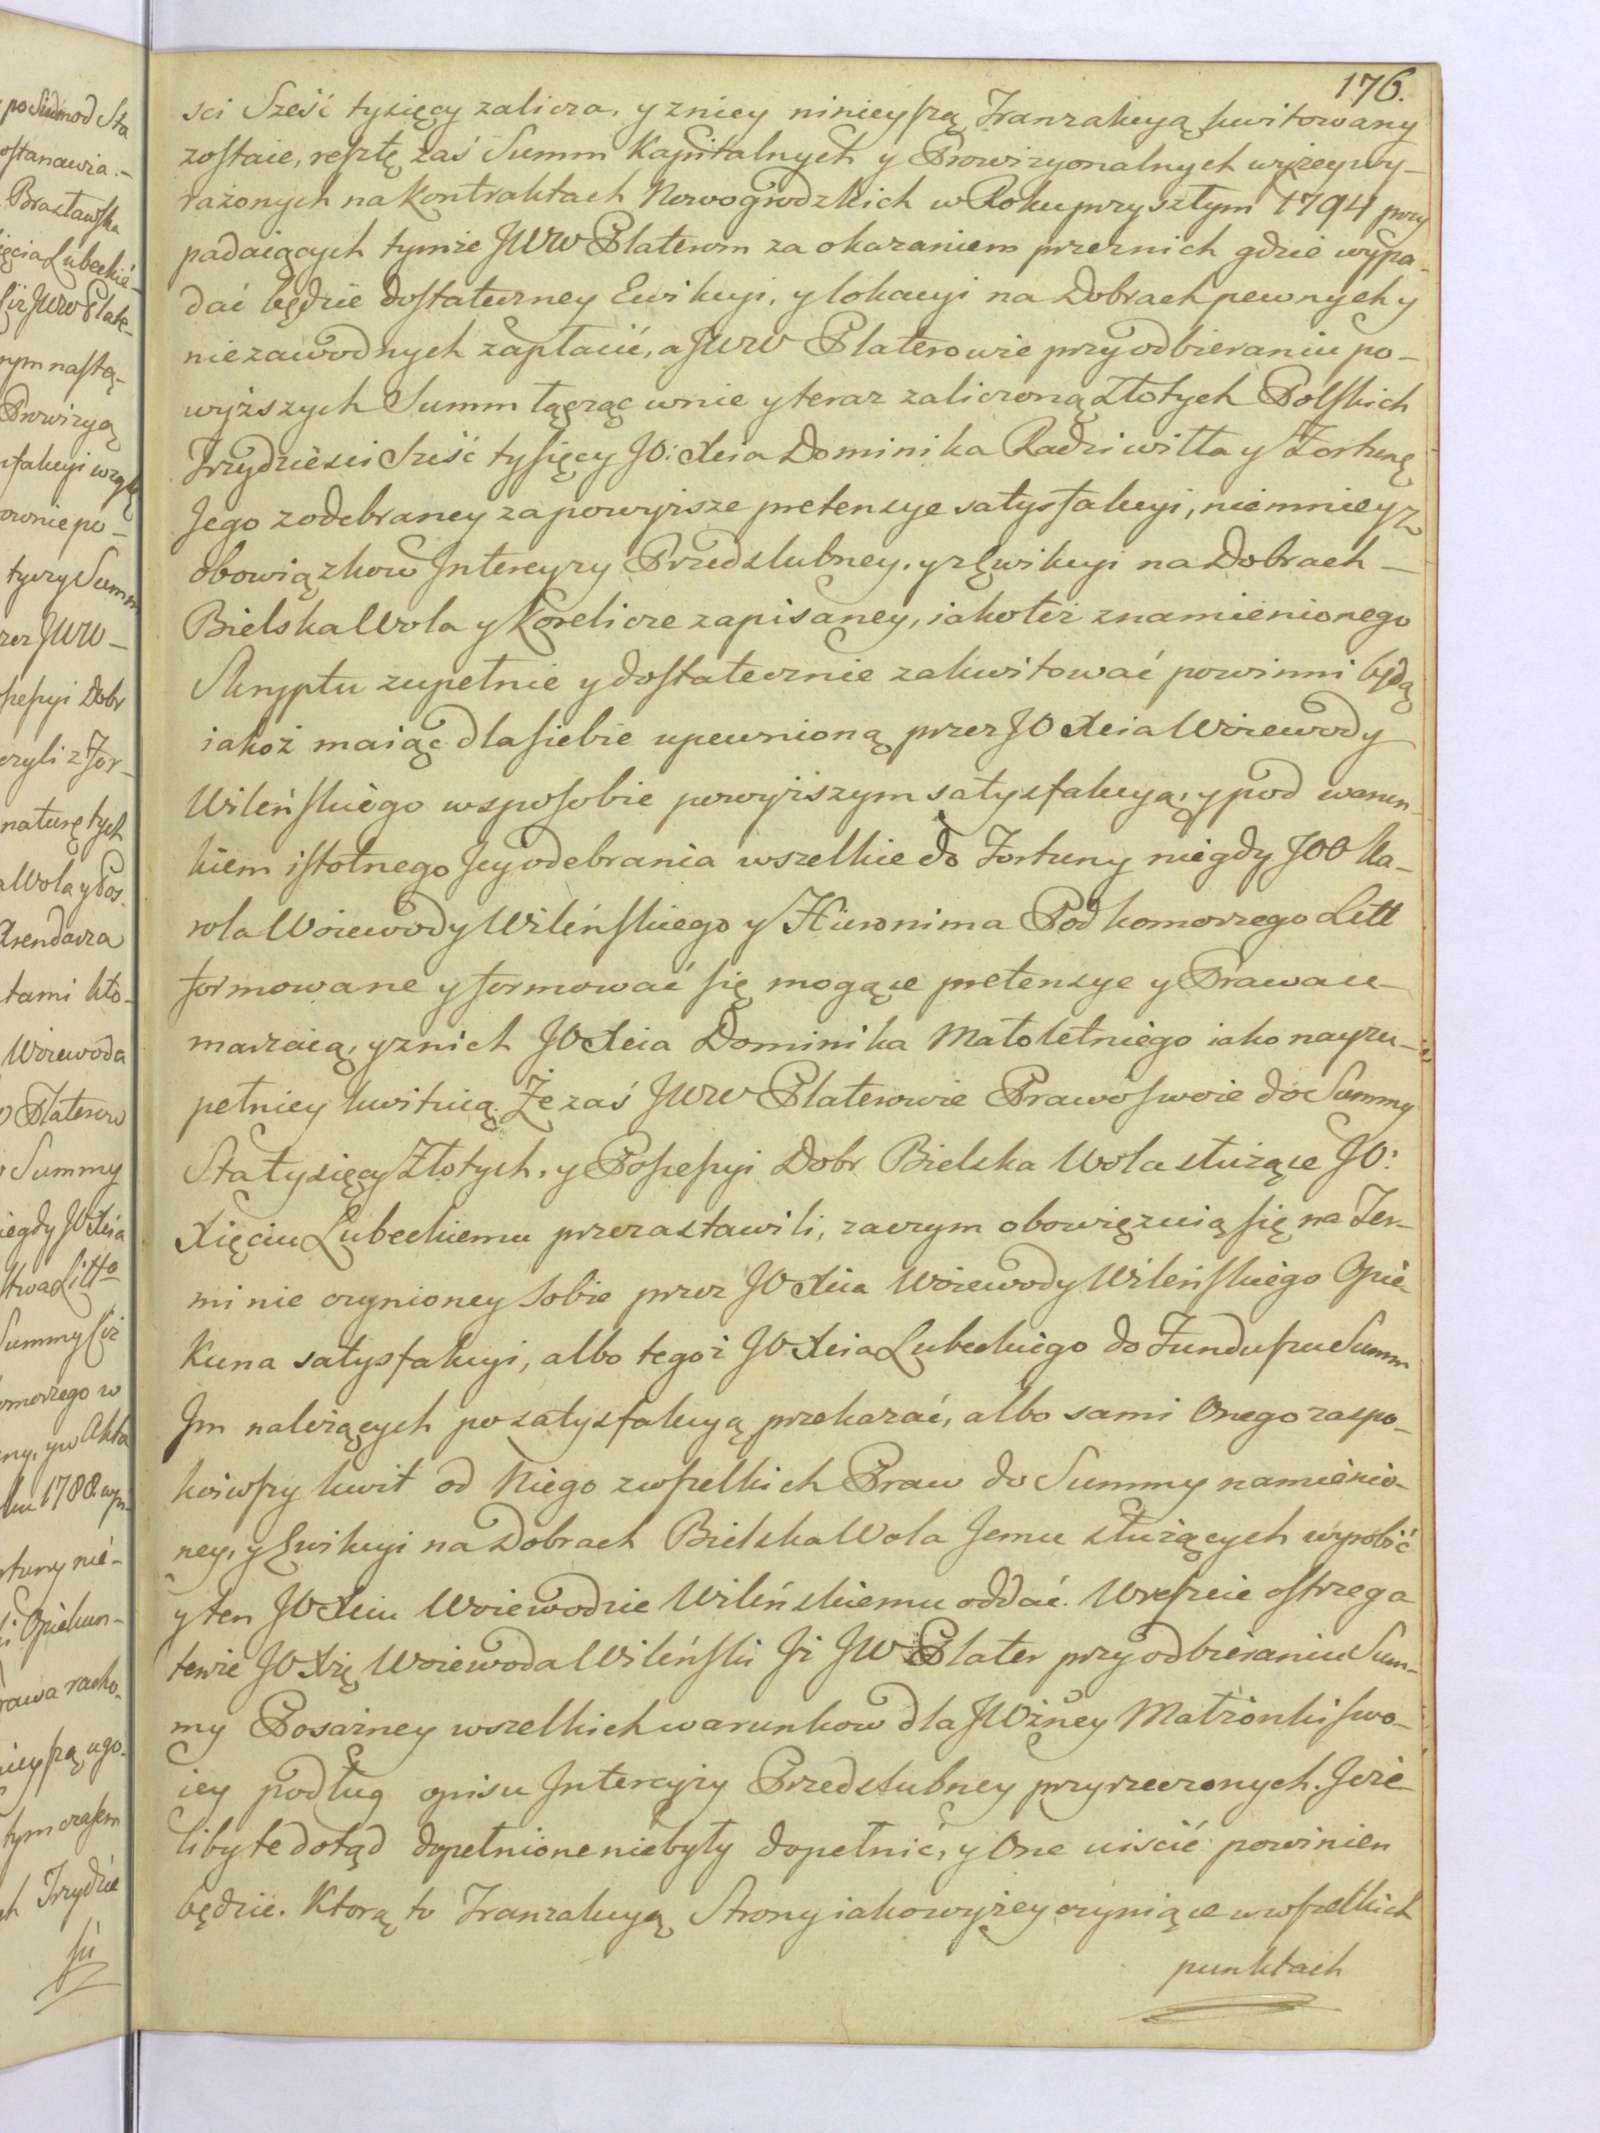 176.
sci Sześć tysięcy zalicza, y zniey ninieyszą Tranzakcyą kwitowany
zostaie, resztę zaś Summ Kapitalnych y Prowizyonalnych wyżeywy-
rażonych na Kontraktach Nowogrodzkich w Roku przyszłym 1794 przy
padaiących tymże JWW Platerom za okazaniem przeznich gdzie wypa-
dać będzie dostateczney Ewikcyi, y lokacyi na Dobrach pewnych y
niezawodnych zapłacić, a JWW Platerowie przy odbieraniu po-
wyższych Summ łącząc wnie y teraz zaliczoną Złotych Polskich
Trzydzieści Sześć tysięcy JO: Xcia Dominika Radziwiłła y Fortunę
Jego z odebraney za powyższe pretensye satysfakcyi, niemniey z
obowiązkow Intercyzy Przedslubney, y z Ewikcyi na Dobrach –
Bielska Wola y Korelicze zapisaney, iakoteż znamienionego
Skryptu zupełnie y dostatecznie zakwitować powinni będą
iakoż maiąc dla siebie upewnioną przez JO Xcia Woiewody
Wileńskiego wsposobie powyższym satysfakcyą, y pod warun-
kiem istotnego Jey odebrania wszelkie do Fortuny niegdy JOO Ka-
rola Woiewody Wileńskiego y Hieronima Podkomorzego Litt
formowane y formować się mogące pretensye y Prawa u-
marzaią, y z nich JO Xcia Dominika Małoletniego iako nayzu-
pełniey kwituią. Że zaś JWW Platerowie Prawo swoie do Summy
Sta tysięcy Złotych, y Possessyi Dobr Bielska Wola służące JO:
Xięciu Lubeckiemu przezastawili, zaczym obowiązuią się na Ter-
minie czynioney sobie przez JO Xcia Woiewody Wileńskiego Opie-
kuna satysfakcyi, albo tegoż JO Xcia Lubeckiego do Funduszu Summ
Im należących po satysfakcyą przekazać, albo sami Onego zaspo-
koiwszy kwit od Niego zwszelkich Praw do Summy namienio-
ney, y Ewikcyi na Dobrach Bielska Wola Jemu służących wyrobić
y ten JO Xciu Woiewodzie Wileńskiemu oddać. Wreszcie ostrzega
tenże JO Xżę Woiewoda Wileński Jż JW Plater przy odbieraniu Sum-
my Posażney wszelkich warunkow dla JWżney Małżonki swo-
iey podług opisu Intercyzy Przedslubney przyrzeczonych. Jeże-
liby te dotąd dopełnione niebyły dopełnić, y One uiścić powinien
będzie. Ktorą to Tranzakcyą Strony iakowyżey czyniące w wszelkich
punktach